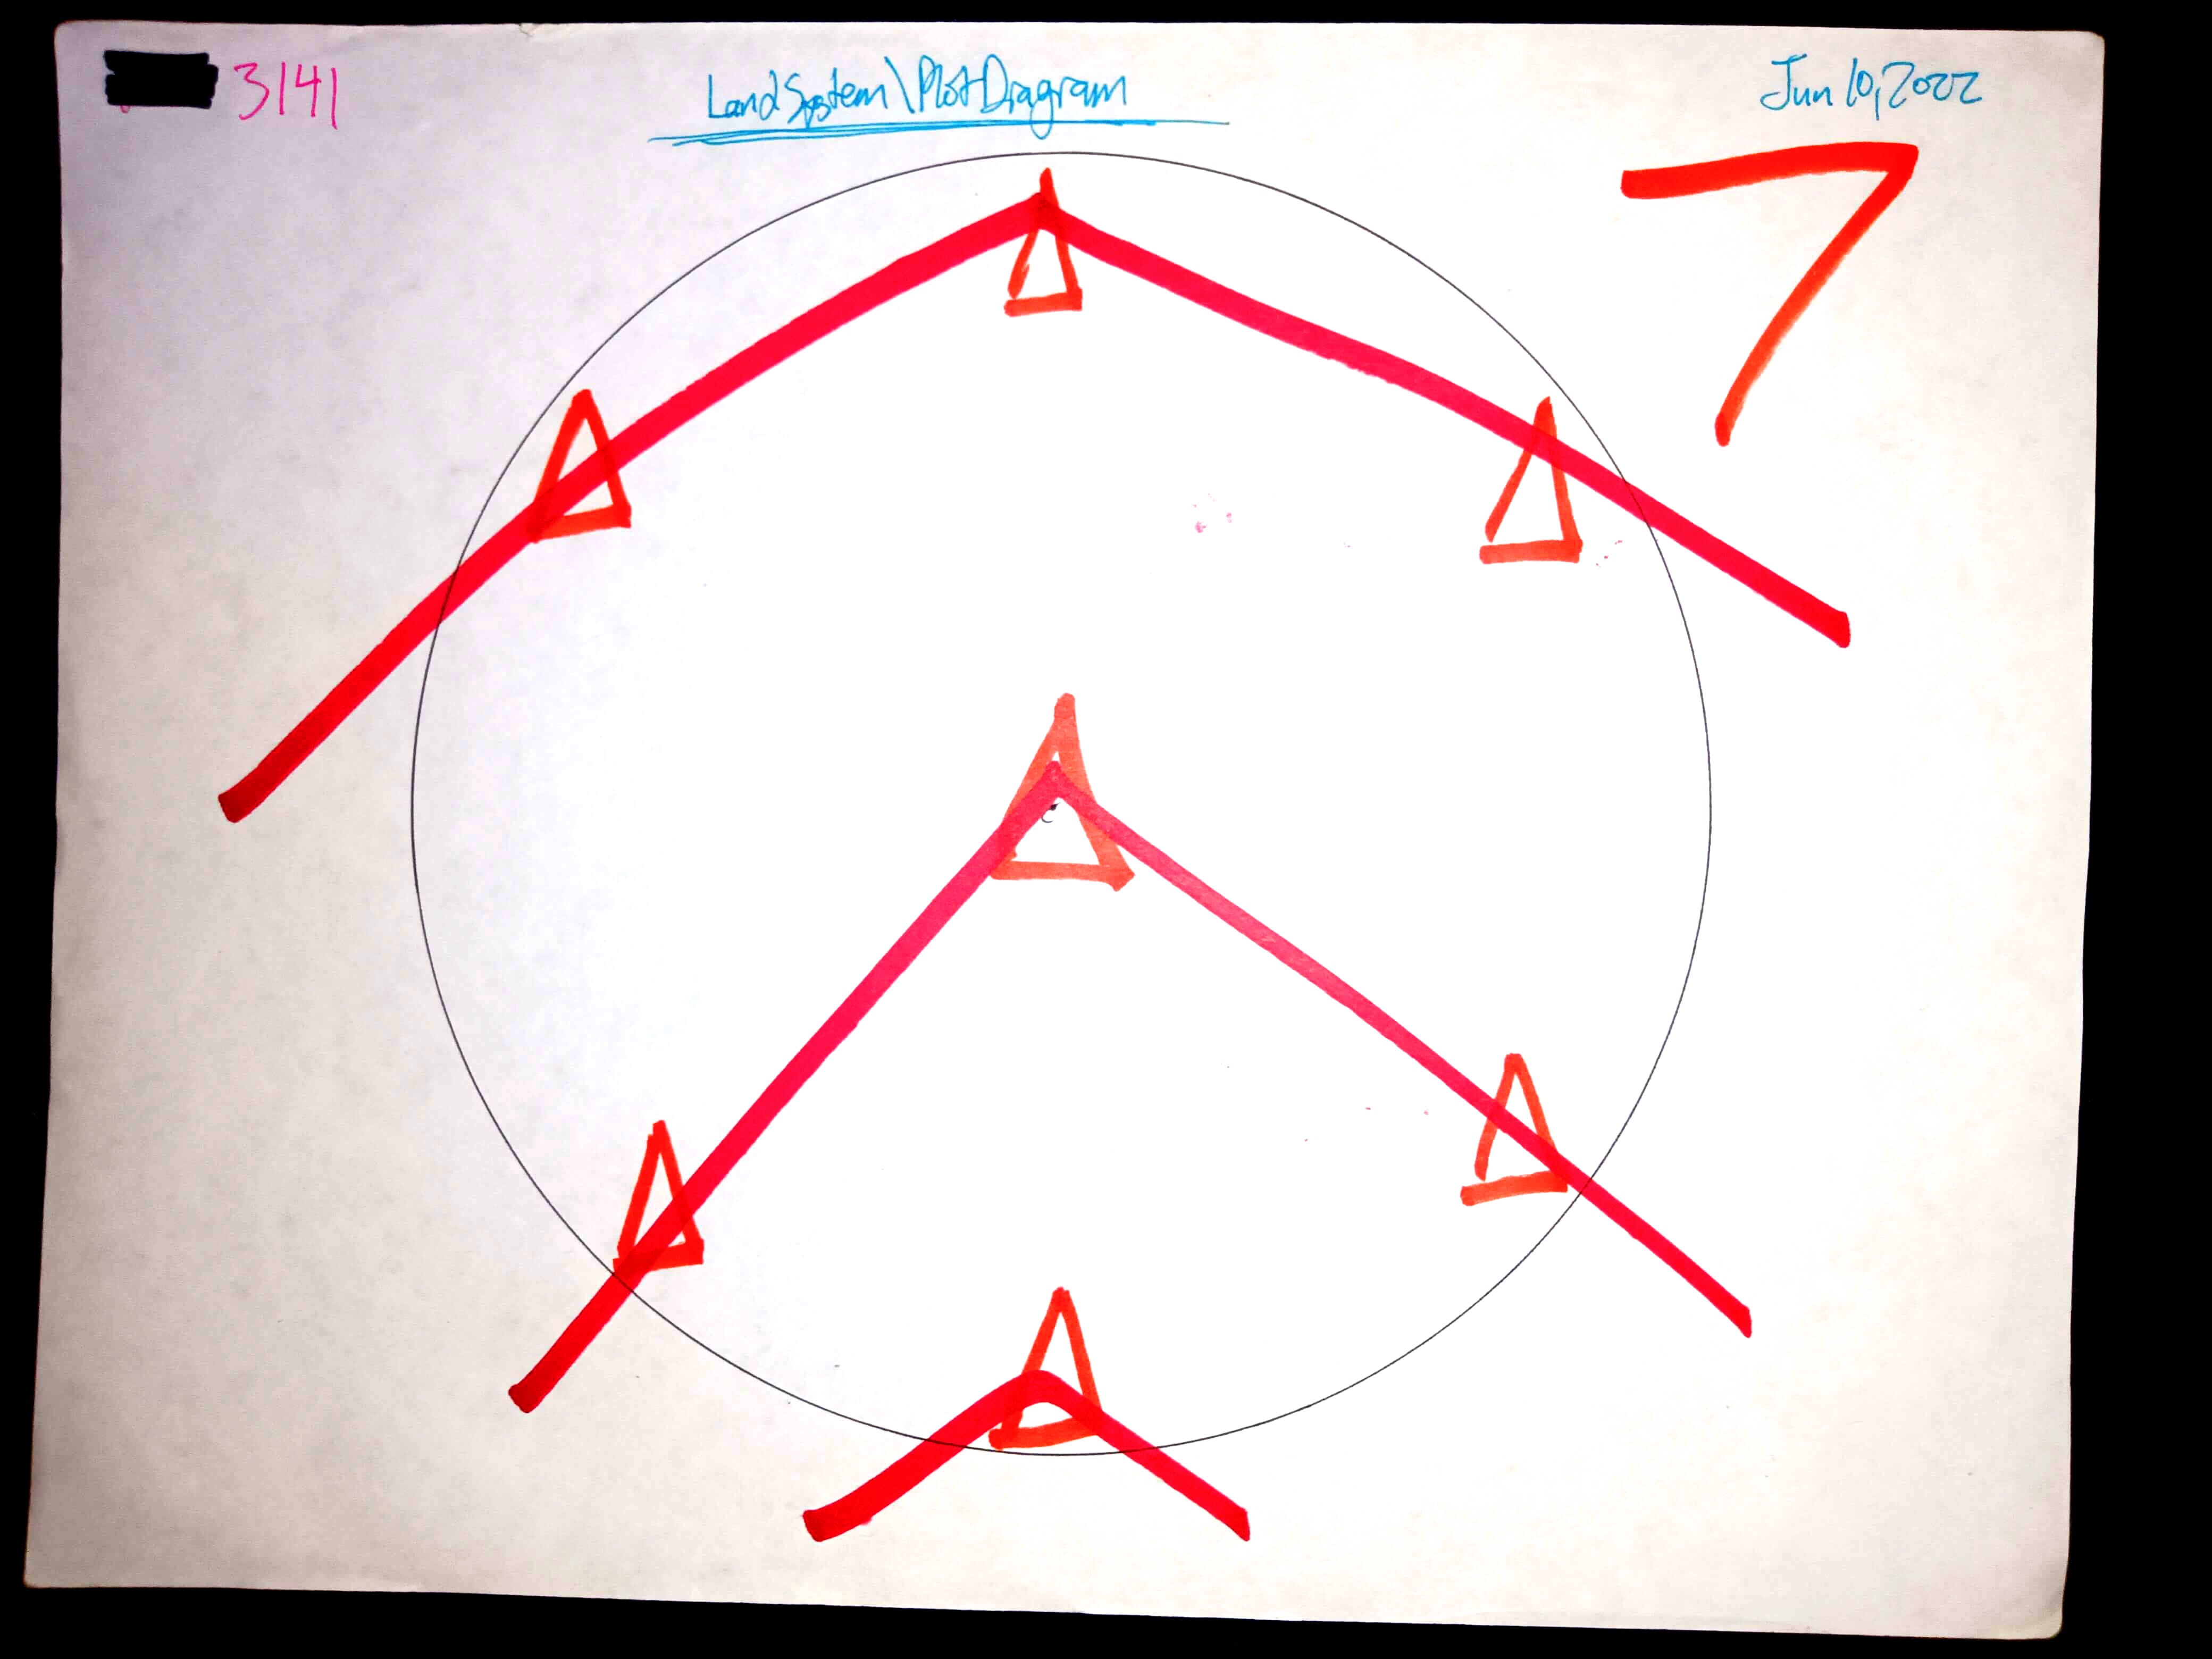 3141
Land System\Plot Diagram
Jun 10, 2022
7
c